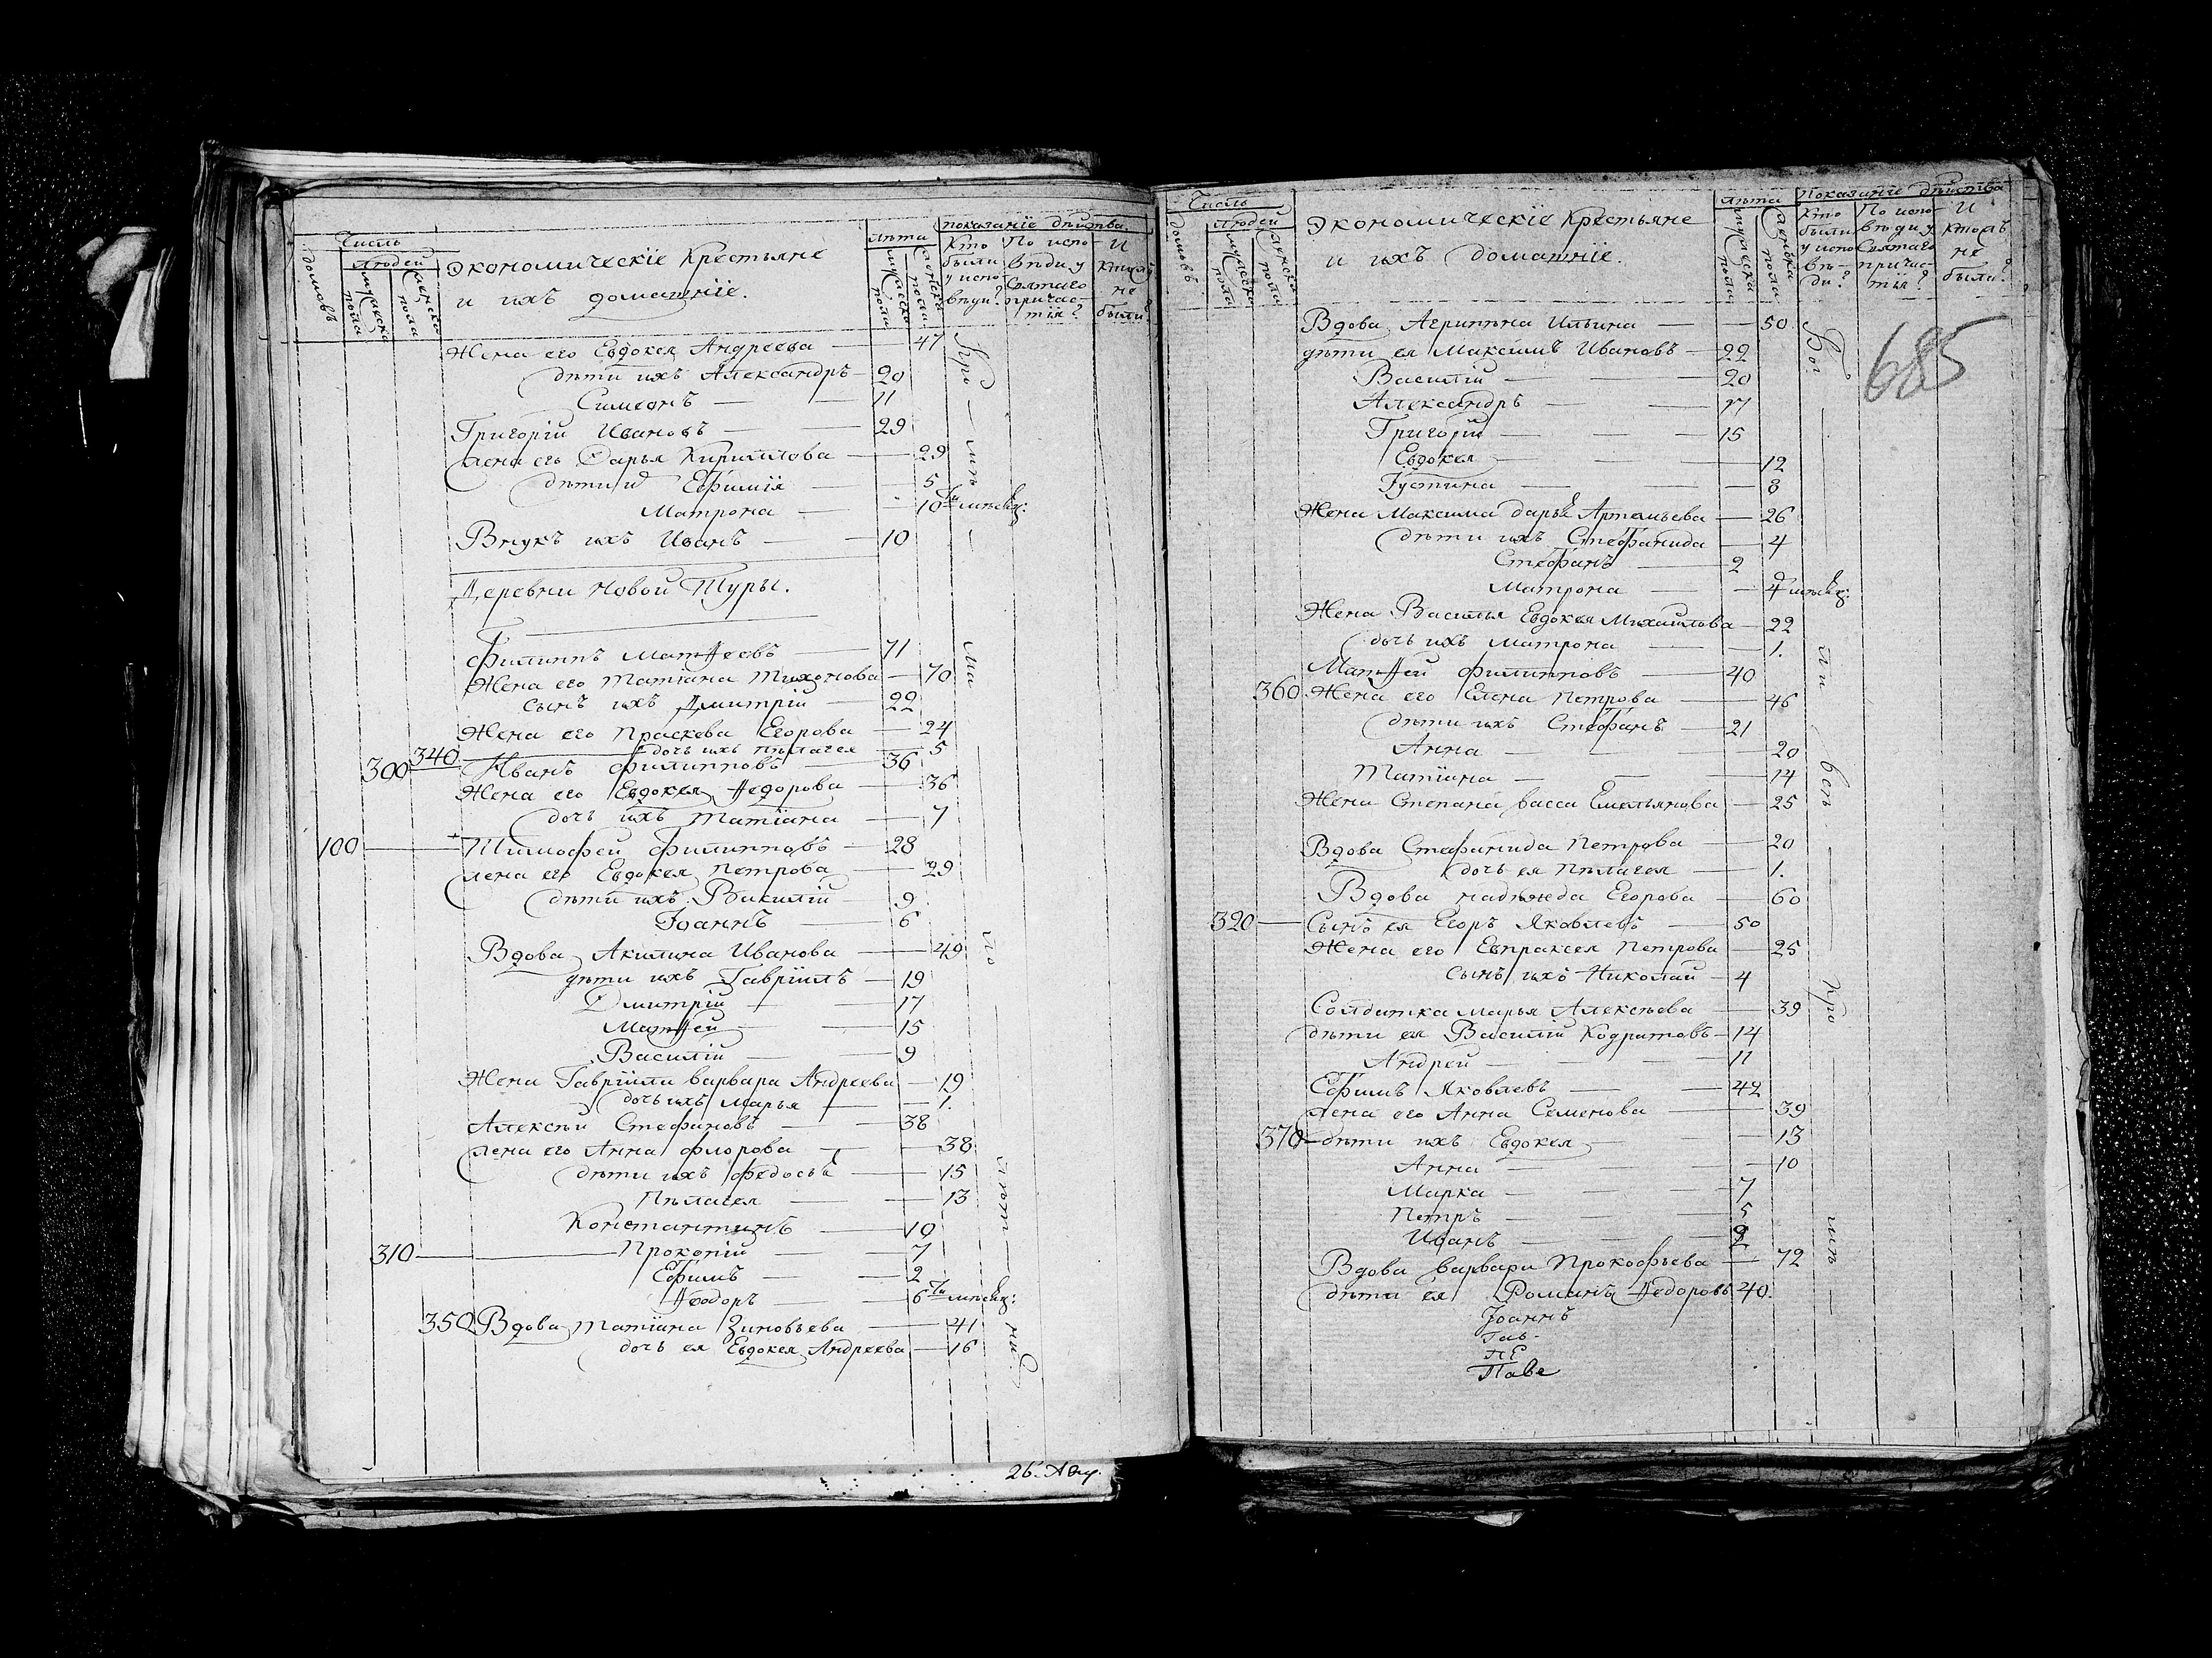 Число
домовъ
людей
мужеска пола
женска пола
Экономическіе Крестьяне
и ихъ домашніе.
лѣта
мужеска пола
женска пола
показаніе дѣйства
Кто были у исповѣди?
По исповѣди у Святаго причастія?
И
не были?
Жена его Евдокея Андреева 47
дѣти ихъ Александръ 20
Симеонъ 11
Григорій Ивановъ 29
жена его Дарья Кириллова 29
дѣти Ефимія 5
Матрона 10ти мѣсяц:
Внукъ ихъ Иванъ 10
Деревни Новой Туры.
Филиппъ Матѳеевъ 71
Жена его Татіана Тихонова 70
сынъ ихъ Дмитрій 22
Жена его Праскева Егорова 24
340 дочь ихъ Пѣлагея 5
300 Иванъ Филипповъ 36
Жена его Евдокея Ѳедорова 36
дочь ихъ Татіана 7
100 Тимофей Филипповъ 28
жена его Евдокея Петрова 29
дѣти ихъ Василій 9
Іоаннъ 6
Вдова Акилина Иванова 49
дѣти ихъ Гавріилъ 19
Дмитрій 17
Матѳей 15
Василій 9
Жена Гавріила варвара Андреева 19
дочь ихъ Марья 1.
Алексѣй Стефановъ 38
жена его Анна Флорова 38
дѣти ихъ Федосья 15
Пѣлагея 13
Константинъ 10
310 Прокопій 7
Ефимъ 2
Ѳеодоръ 6ти мѣсяц:
350 Вдова Татіана Зиновьева 41
дочь ея Евдокея Андреева 16
Числъ
домовъ
людей
мужеска пола
женска пола
Экономическіе Крестьяне
и ихъ домашніе.
лѣта
мужеска пола
женска пола
Показаніе дѣйства
Кто были у исповѣди?
По исповѣди у Святаго причастія?
И ктожъ не были?
685
Вдова Агрипѣна Ильина 50
дѣти ея Максимъ Ивановъ 22
Василій 20
Александръ 17
Григорій 15
Евдокея 12
Густина 8
Жена Максима дарья Артемьева 26
дѣти ихъ Стефанида 4
Стефанъ 2
Матрона 4 мѣсяц:
Жена Василья Евдокея Михайлова 22
дочь ихъ Матрона 1.
Матѳей Филипповъ 40
360 Жена его Елена Петрова 46
дѣти ихъ Стефанъ 21
Анна 20
Татіана 14
Жена Степана васса Емельянова 25
Вдова Стефанида Петрова 20
дочь ея Пѣлагея 1.
Вдова надѣжда Егорова 60
320 Сынъ ея Егоръ Яковлевъ 50
Жена его Евпраксея Петрова 25
сынъ ихъ Николай 4
Солдатка Марья Алексѣева 39
дѣти ея Василій Кодратовъ 14
Андрей 11
Ефимъ Яковлевъ 42
жена его Анна Семенова 39
370 дѣти ихъ Евдокея 13
Анна 10
Марка 7
Петръ 5
Иванъ 2
Вдова варвара Прокофьева 72
дѣти ея Романъ Ѳедоровъ 40.
Іоаннъ
Гав-
пЕ
Паве